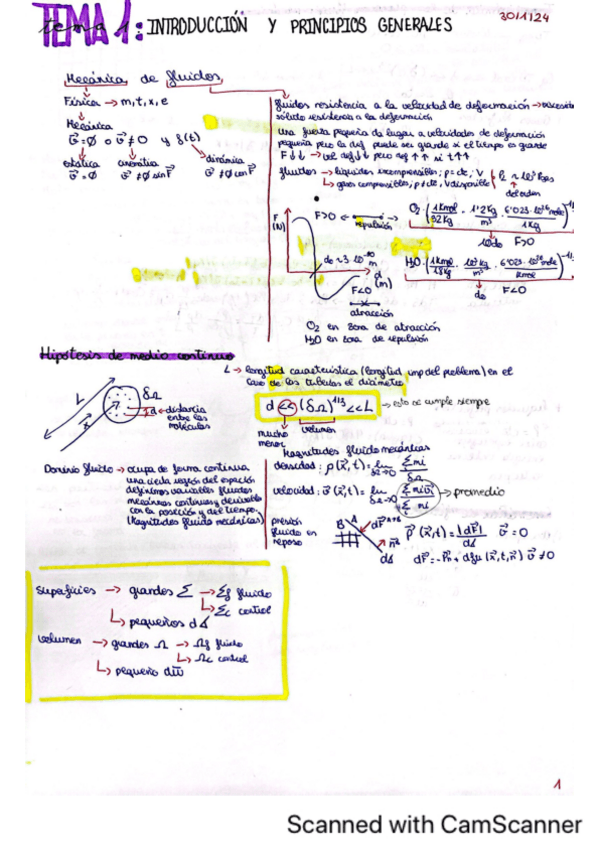 TEMA 1: INTRODUCCIÓN Y PRINCIPIOS GENERALES
30/1/24
Mecánica de fluidos
Física → m, t, x, e
Mecánica
v̄=Ø o v̄≠0 y f(t)
estática cinemática dinámica
v̄=Ø v̄≠Ø sin F v̄≠Ø con F
fluidos resistencia a la velocidad de deformación →
sólido resistencia a la deformación
Una fuerza pequeña da lugar a velocidades de deformación
pequeña pero la def puede ser grande si el tiempo es grande
F↓↓ → vel def↓↓ pero def ↑↑ si t↑↑
fluidos → líquidos incompresibles; ρ=cte, V
→ gases compresibles; ρ≠cte, V disponible
del orden
F (N)
F>0
repulsión
d (m)
F<0
atracción
10do F>0
do F<0
O₂ en zona de atracción
H₂O en zona de repulsión
Hipótesis de medio continuo
L → longitud característica (longitud imp del problema) en el
caso de las tuberías el diámetro
L
δΩ
d → distancia
entre las
moléculas
d << (δΩ)^1/3 << L → esto se cumple siempre
mucho
menor
volumen
Dominio fluido → ocupa de forma continua
una cierta región del espacio
definimos variables fluidas
mecánicas continuas y derivables
con la posición y del tiempo
(Magnitudes fluido mecánicas)
Magnitudes fluido mecánicas
densidad: ρ(x̄,t)= lim δΩ→0 Σmi/δΩ
velocidad: v̄(x̄,t)= lim δΩ→0 Σmiv̄i/Σmi → promedio
presión
fluido en
reposo
v̄=0
Superficies → grandes Σ → Σf fluido
→ Σc control
→ pequeños
Volumen → grandes Ω → Ωf fluido
→ Ωc control
→ pequeño
1
Scanned with CamScanner